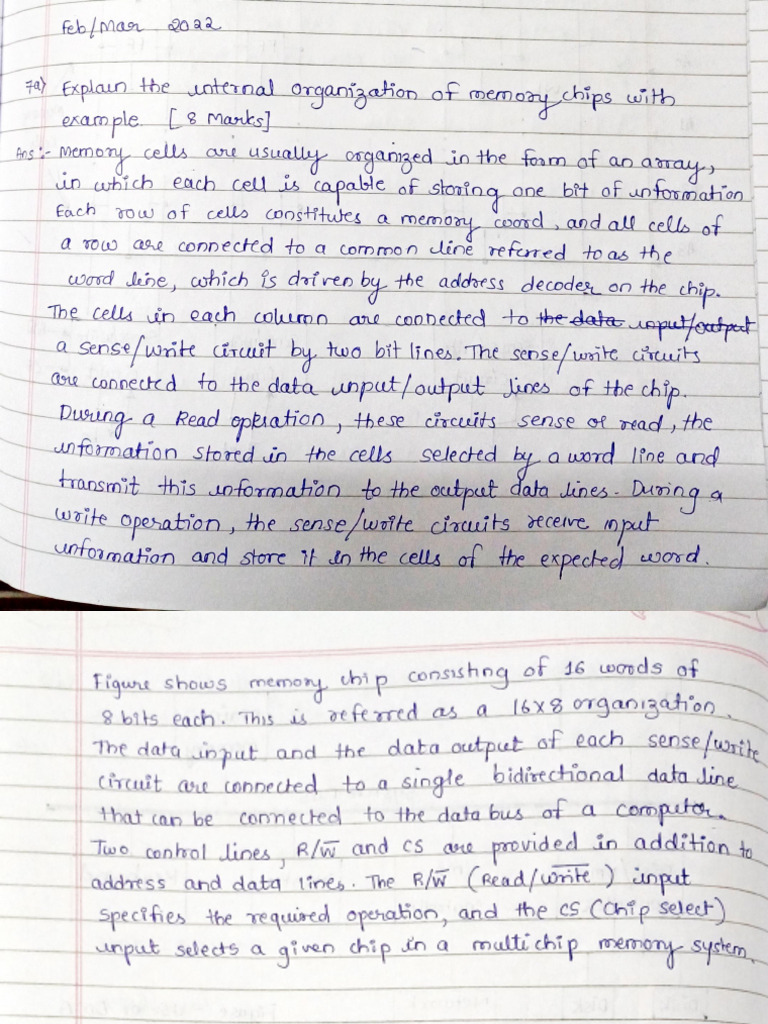 Feb/Mar 2022
7a) Explain the internal organization of memory chips with
example. [8 Marks]
Ans:- Memory cells are usually organized in the form of an array,
in which each cell is capable of storing one bit of information
Each row of cells constitutes a memory word, and all cells of
a row are connected to a common line referred to as the
word line, which is driven by the address decoder on the chip.
The cells in each column are connected to the data input/output
a sense/write circuit by two bit lines. The sense/write circuits
are connected to the data input/output lines of the chip.
During a Read operation, these circuits sense or read, the
information stored in the cells selected by a word line and
transmit this information to the output data lines. During a
write operation, the sense/write circuits receive input
information and store it in the cells of the expected word.
Figure shows memory chip consisting of 16 words of
8 bits each. This is referred as a 16x8 organization.
The data input and the data output of each sense/write
circuit are connected to a single bidirectional data line
that can be connected to the data bus of a computer.
Two control lines, R/W̅ and CS are provided in addition to
address and data lines. The R/W̅ (Read/W̅r̅i̅t̅e̅) input
specifies the required operation, and the CS (Chip select)
input selects a given chip in a multichip memory system.